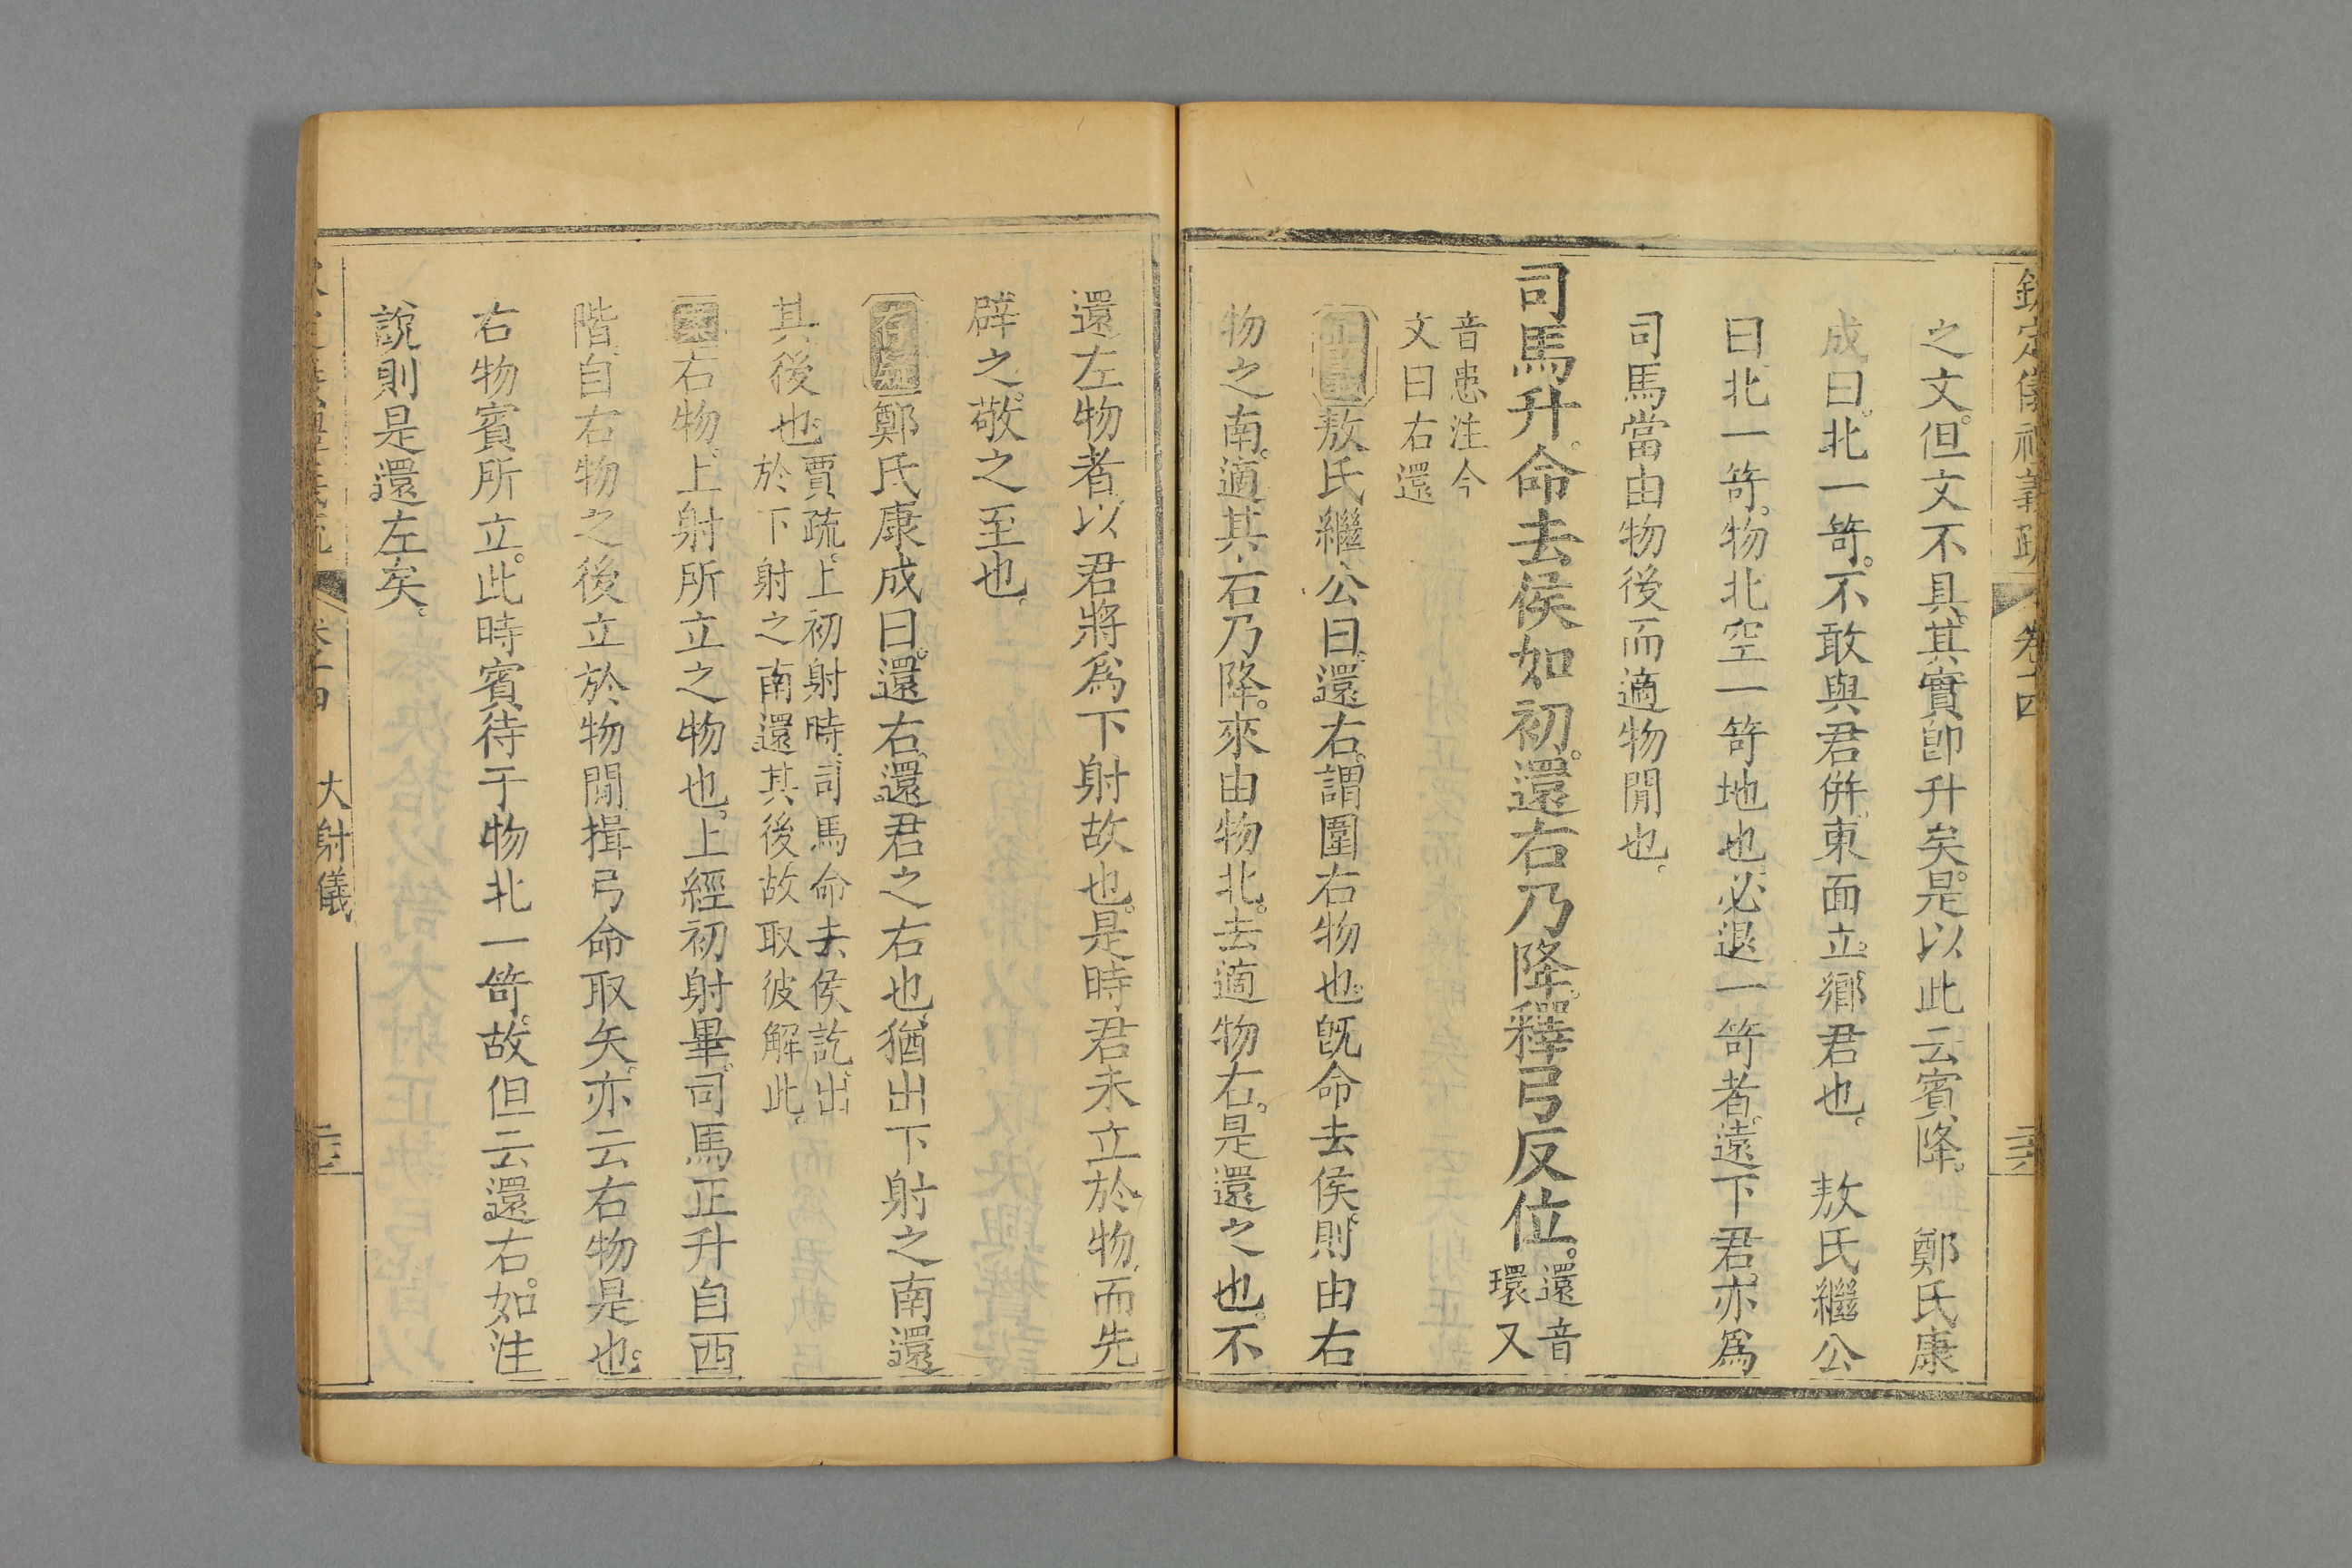 欽定儀禮義疏 卷十四
之文。但文不具。其實卽升矣。是以此云賓降。 鄭氏康
成曰。北一笴。不敢與君併。東面立。鄉君也。 敖氏繼公
曰北一笴。物北空一笴地也。必退一笴者。遠下君。亦爲
司馬當由物後而適物閒也。
司馬升。命去侯如初。還右乃降。釋弓反位。還音環又
音患注今文曰右還
敖氏繼公曰。還右。謂圍右物也。旣命去侯。則由右
物之南。適其右乃降。來由物北。去適物右。是還之也。不
還左物者以君將爲下射故也。是時君未立於物。而先
辟之。敬之至也。
存疑鄭氏康成曰。還右。還君之右也。猶出下射之南還
其後也。賈疏。上初射時。司馬命去侯訖。出於下射之南還其後故取彼解此。
案右物。上射所立之物也。上經初射畢。司馬正升自西
階。自右物之後立於物閒揖弓命取矢。亦云右物是也。
右物賓所立。此時賓待于物北一笴。故但云還右。如注
說則是還左矣。
大射儀